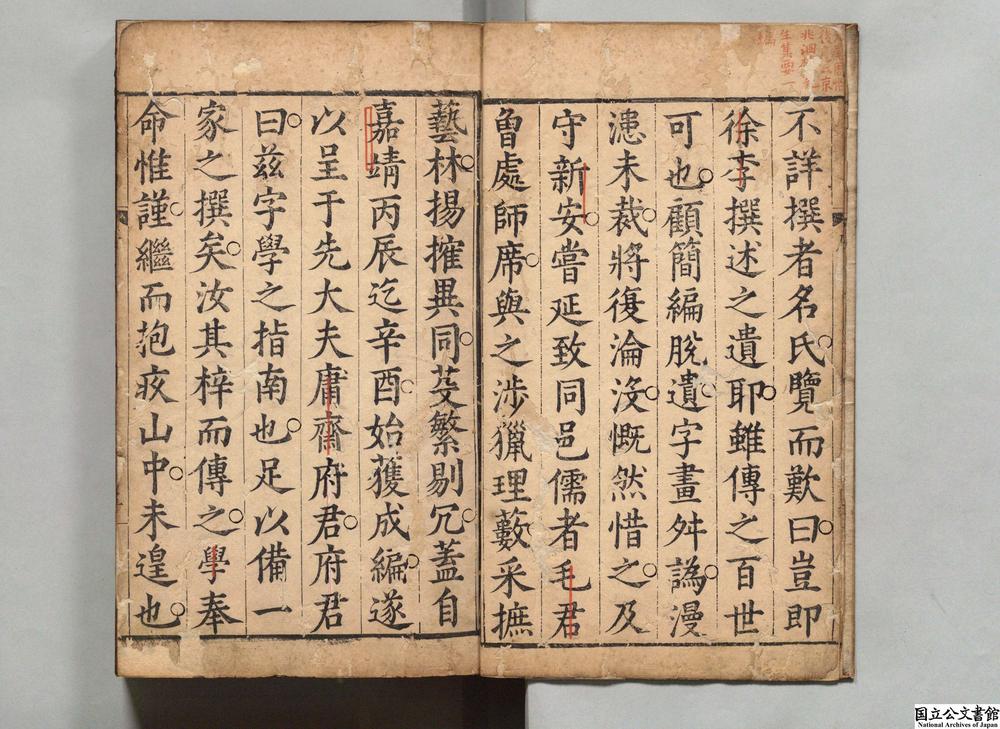 不詳撰者名氏覽而歎曰豈即
徐李撰述之遺耶雖傳之百世
可也顧簡編脫遺字畫舛譌漫
漶未裁將復淪沒慨然惜之及
守新安嘗延致同邑儒者毛君
魯處師席與之涉獵理藪采摭
藝林揚搉異同芟繁剔冗蓋自
嘉靖丙辰迄辛酉始獲成編遂
以呈于先大夫庸齋府君府君
曰茲字學之指南也足以備一
家之撰矣汝其梓而傳之學奉
命惟謹繼而抱疢山中未遑也
国立公文書館
National Archives of Japan